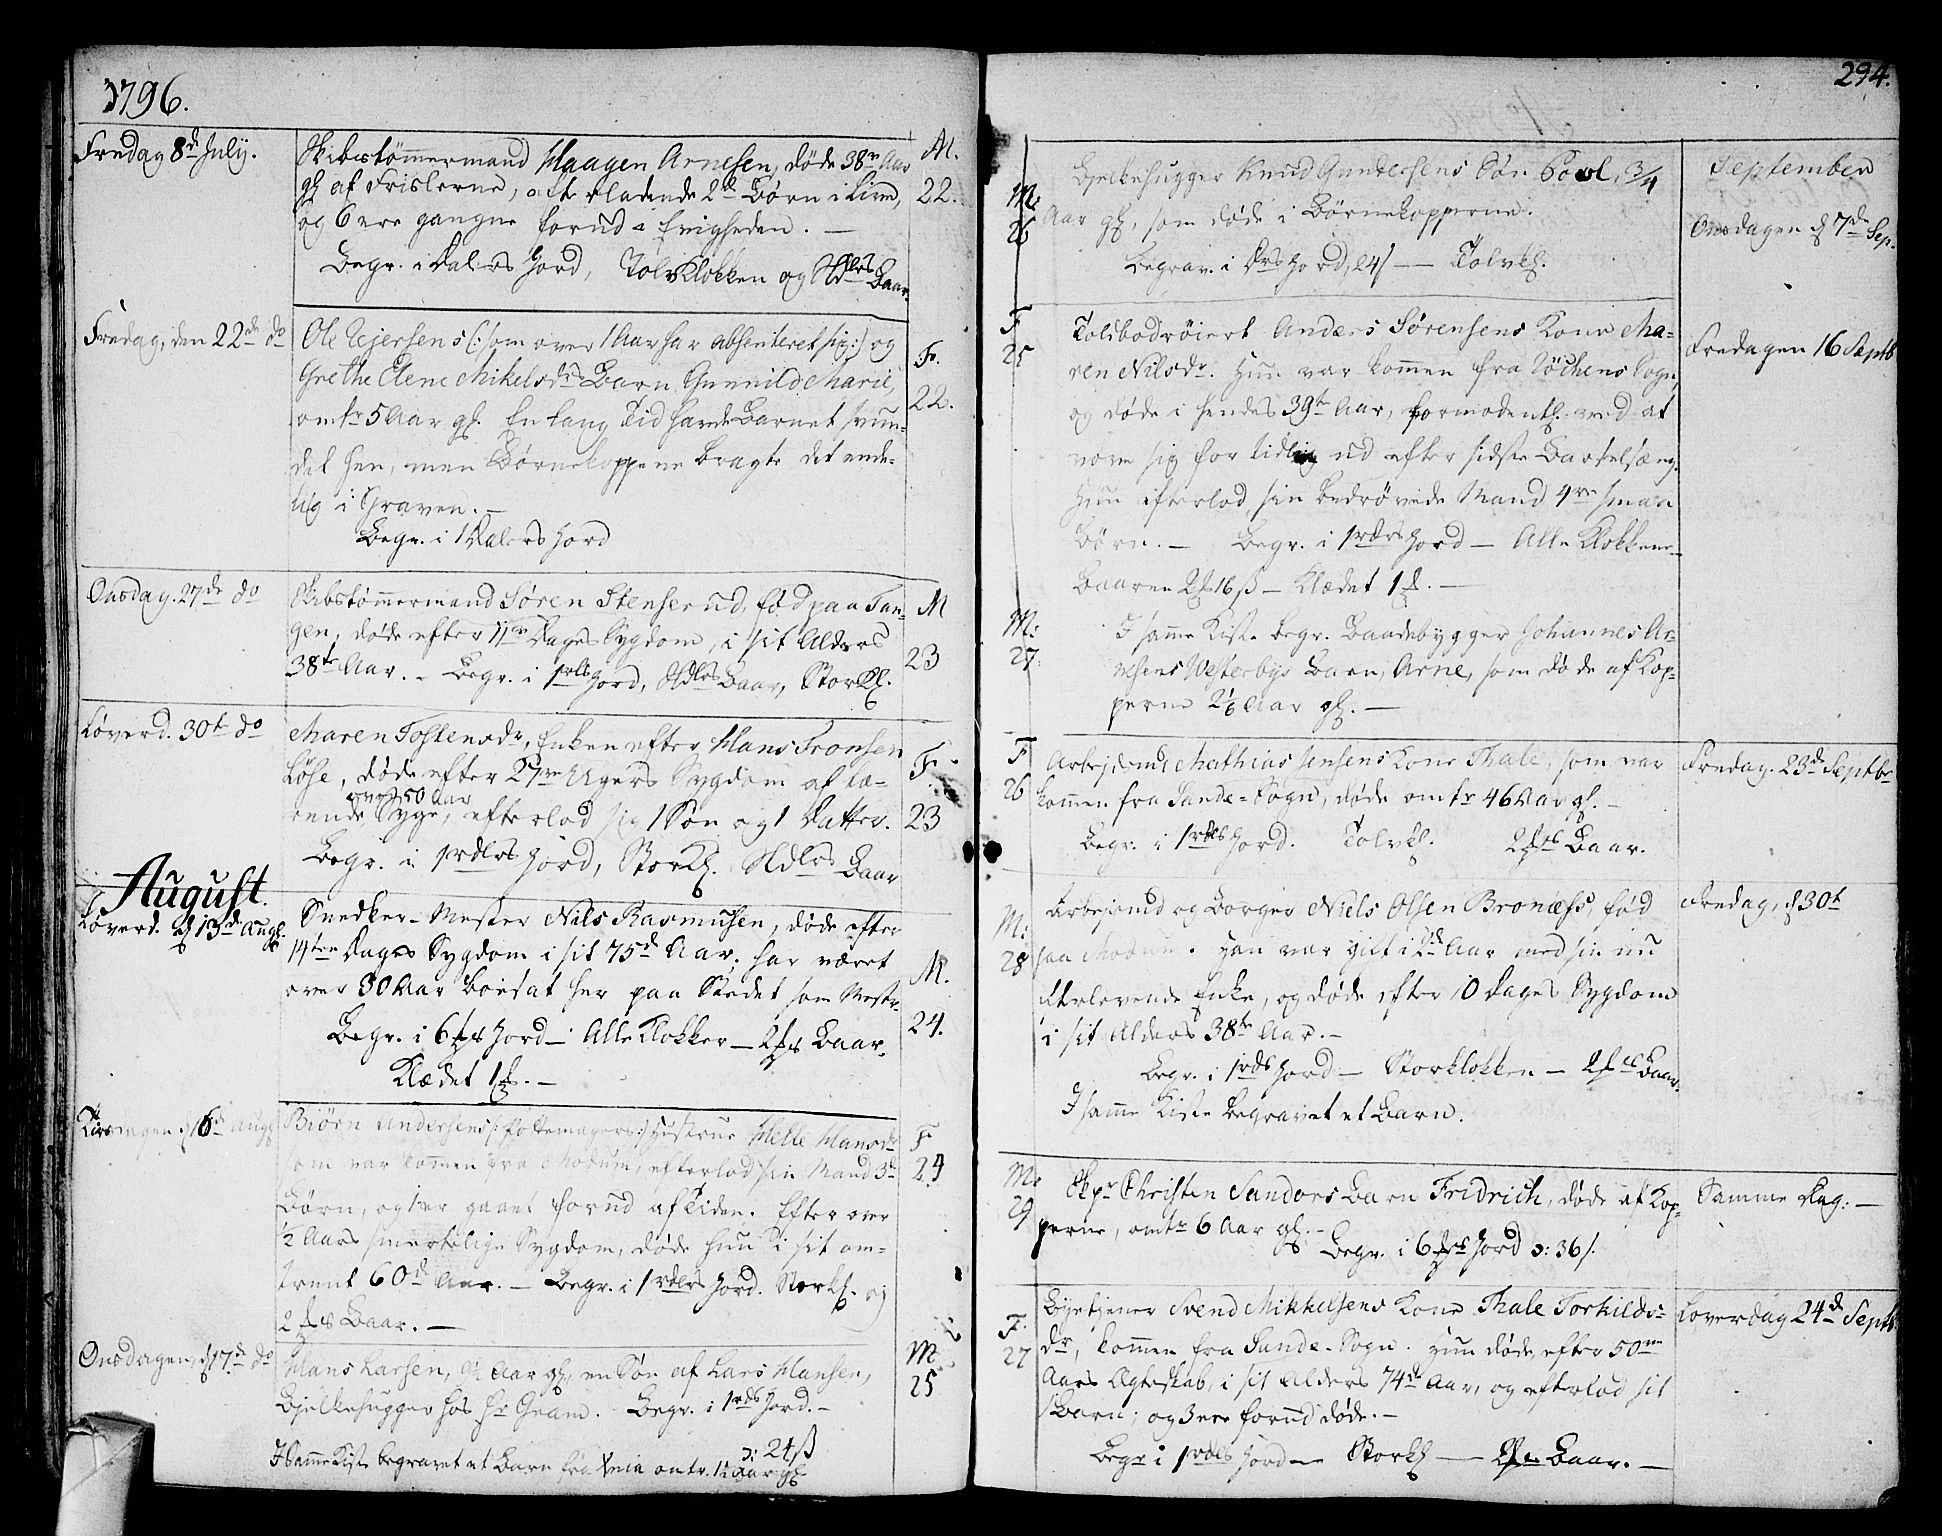 1796.
Fredag 8de July.
Skibstömmermand Haagen Arnesen, døde 38te Aar
gl. af Frislerne, efterladende 2de Börn i Live,
og 6 ere gangne forud i Evigheden. —
Begr. i Dalers Jord, Tolvklokken og Baar.
M.
22.
Fredag, den 22de do
Ole Ejersens (: som over 1 Aar har absenteret sig :) og
Grethe Elene Mikelsdr Barn Gunnild Marie,
omtr 5 Aar gl. En lang Tid havde Barnet svun-
det hen, men Börnekoppene bragte det ende-
lig i Graven. —
Begr. i 1 Dalers Jord
F.
22.
Onsdag. 27de do
Skibstömmermand Sören Stensrud, fød paa Tan-
gen, døde efter 11 Dages Sygdom, i sit Alders
38te Aar. – Begr. i 1rdls Jord, Baar, Storkl.
M
23
Löverd. 30te do
Maren Tostensdr, Enken efter Hans Tronsen
Löse, døde efter 27 Ugers Sygdom af tæ-
over 50 Aar
rende Syge, efterlod sig 1 Sön og 1 Datter.
Begr. i 1rdlrs Jord, Storkl. Baar
F.
23
August.
Löverd. d 13de Aug.
Snedker-Mester Nils Rasmusen, døde efter
14ten Dages Sygdom i sit 75de Aar, har været
over 30 Aar boesat her paa Stedet som Mester.
Begr. i 6 Jord – Alle Klokker – Baar.
Klædet 1 . –
M.
24.
Tirsdagen d 16de Aug
Biörn Andersens (: Pottemagers :) Hustrue Helle Hansdr
som var kommen fra Modum, efterlod sin Mand 3de
Börn, og 1 er gaaet forud af Tiden. Efter over
½ Aars smertelige Sygdom, døde hun i sit om-
trent 60de Aar. – Begr. i 1rdlrs Jord. Storkl. og
2 Baar. —
F.
24
Onsdagen, d 17de do
Hans Larsen, Aar gl, en Sön af Lars Hansen,
Bjelkehugger hos Hr Gram. Begr. i 1rdls Jord. –
24 ß
I Samme Kiste begravet et Barn fra omtr. 1½ Aar gl
M
25
294.
M:
26
Bjelkehugger Knud Gundersens Sön Povl, 3/4
Aar gl, som døde i Börnekopperne.
Begrav. i Jord, 24 ß — Tolvkl.
September
Onsdagen d 7de Sep.
F
25
Toldbodrøiert Anders Sörensens Kone Ma-
ren Nilsdr. Hun var kommen fra Sogn,
og døde i hendes 39te Aar, formodentl. ved at
vove sig for tidlig ud efter sidste Barselsæng.
Hun efterlod sin bedrøvede Mand 4re smaa
Börn. – Begr. i 1rdlrs Jord – Alle Klokkene –
Baaren 16 ß – Klædet 1 . –
Fredagen 16 Septb
M:
27.
I samme Kiste begr. Baadebygger Johannes Ar-
nesens Westerbys Barn, Arne, som døde af Kop-
perne Aar gl. –
F
26
Arbejdsmd Mathias Jensens Kone Thale, som var
kommen fra Sande-Sogn, døde omtr 46 Aar gl. –
Begr. i 1rdls Jord. Tolvkl. Baar.
Fredag. 23de Septbr
M:
28
Arbejdsmd og Borger Niels Olsen Bronæss, fød
paa Modum. Han var gift i Aar med sin nu
Efterlevende Enke, og døde efter 10 Dages Sygdom
i sit Alders 38te Aar. –
Begr. i 1rdls Jord – Storklokken – Baar.
I samme Kiste begravet et Barn.
Fredag, d 30t
M:
29
Skpr Christen Sandors Barn Fridrich, døde af Kop-
perne, omtr 6 Aar gl. –
Begr. i 6 Jord : 36 ß.
Samme Dag. —
F.
27
Byetjener Svend Mikkelsens Kone Thale Torkilds-
dr, kommen fra Sande-Sogn. Hun døde efter 50
Aars Ægteskab, i sit Alders 74de Aar, og efterlod sit
Barn; og 3 ere forud døde. –
Begr i 1rdls Jord — Storkl — Baar. —
Löverdag 24de Septb